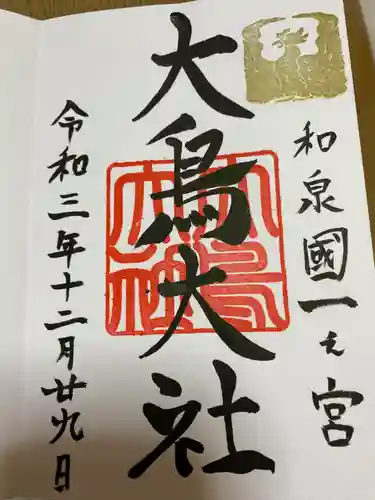 和泉國一之宮
大鳥大社
令和三年十二月廿九日
大鳥大社